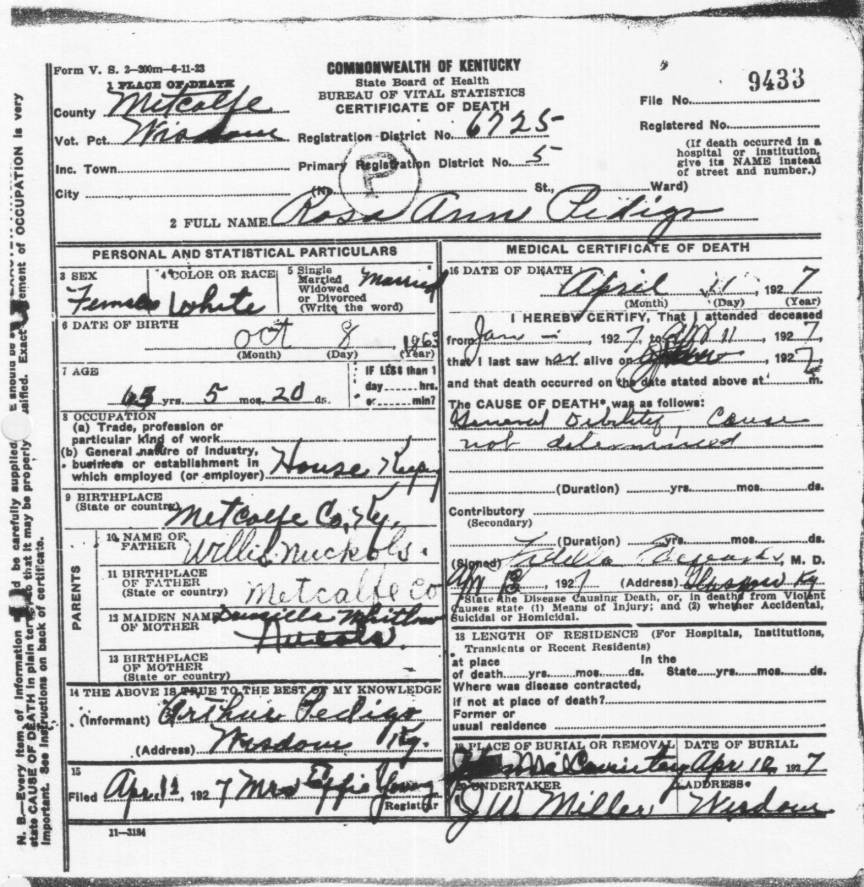 Form V. S. 2—200m—6-11-23
COMMONWEALTH OF KENTUCKY
State Board of Health
BUREAU OF VITAL STATISTICS
CERTIFICATE OF DEATH
File No. 9433
1 PLACE OF DEATH
County Metcalfe
Vot. Pct. Wisdom
Registration District No. 6725
Registered No.
Inc. Town
Primary Registration District No. 5
(If death occurred in a hospital or institution, give its NAME instead of street and number.)
City (No St., Ward)
P
2 FULL NAME Rosa Ann Pedigo
PERSONAL AND STATISTICAL PARTICULARS
3 SEX Female
4 COLOR OR RACE White
5 Single Married Widowed or Divorced (Write the word) Married
6 DATE OF BIRTH
Oct 8, 1863
(Month) (Day) (Year)
7 AGE
yrs. 5 mos. 20 ds.
IF LESS than 1
day hrs.
or min?
8 OCCUPATION
(a) Trade, profession or
particular kind of work
(b) General nature of industry,
business or establishment in
which employed (or employer) House Keeping
9 BIRTHPLACE
(State or country) Metcalfe Co, Ky,
PARENTS
10 NAME OF FATHER Willis Nuckols.
11 BIRTHPLACE OF FATHER
(State or country) Metcalfe Co
12 MAIDEN NAME OF MOTHER Whitlow
13 BIRTHPLACE
OF MOTHER
(State or country)
14 THE ABOVE IS TRUE TO THE BEST OF MY KNOWLEDGE
(Informant) Arthur Pedigo
(Address) Wisdom Ky.
15
Filed Apr. 12, 1927 Mrs Effie Young
Registrar
11—3184
MEDICAL CERTIFICATE OF DEATH
16 DATE OF DEATH
April 11, 1927
(Month) (Day) (Year)
I HEREBY CERTIFY, That I attended deceased
from Jan 1927, to Apr 11, 1927,
that I last saw her alive on , 1927,
and that death occurred on the date stated above at m.
The CAUSE OF DEATH* was as follows:
General Debility, Cause
not determined
(Duration) yrs. mos. ds.
Contributory
(Secondary)
(Duration) yrs. mos. ds.
(Signed) , M. D.
Apr , 1927 (Address) Glasgow Ky
*State the Disease Causing Death, or, in deaths from Violent
Causes state (1) Means of Injury; and (2) whether Accidental,
Suicidal or Homicidal.
18 LENGTH OF RESIDENCE (For Hospitals, Institutions,
Transients or Recent Residents)
at place In the
of death yrs. mos. ds. State yrs. mos. ds.
Where was disease contracted,
if not at place of death?
Former or
usual residence
19 PLACE OF BURIAL OR REMOVAL DATE OF BURIAL
Apr 12, 1927
20 UNDERTAKER ADDRESS
J W Miller Wisdom
N. B.—Every item of information should be carefully supplied. should be stated EXACTLY. state CAUSE OF DEATH in plain terms, so that it may be properly classified. Exact statement of OCCUPATION is very
important. See instructions on back of certificate.